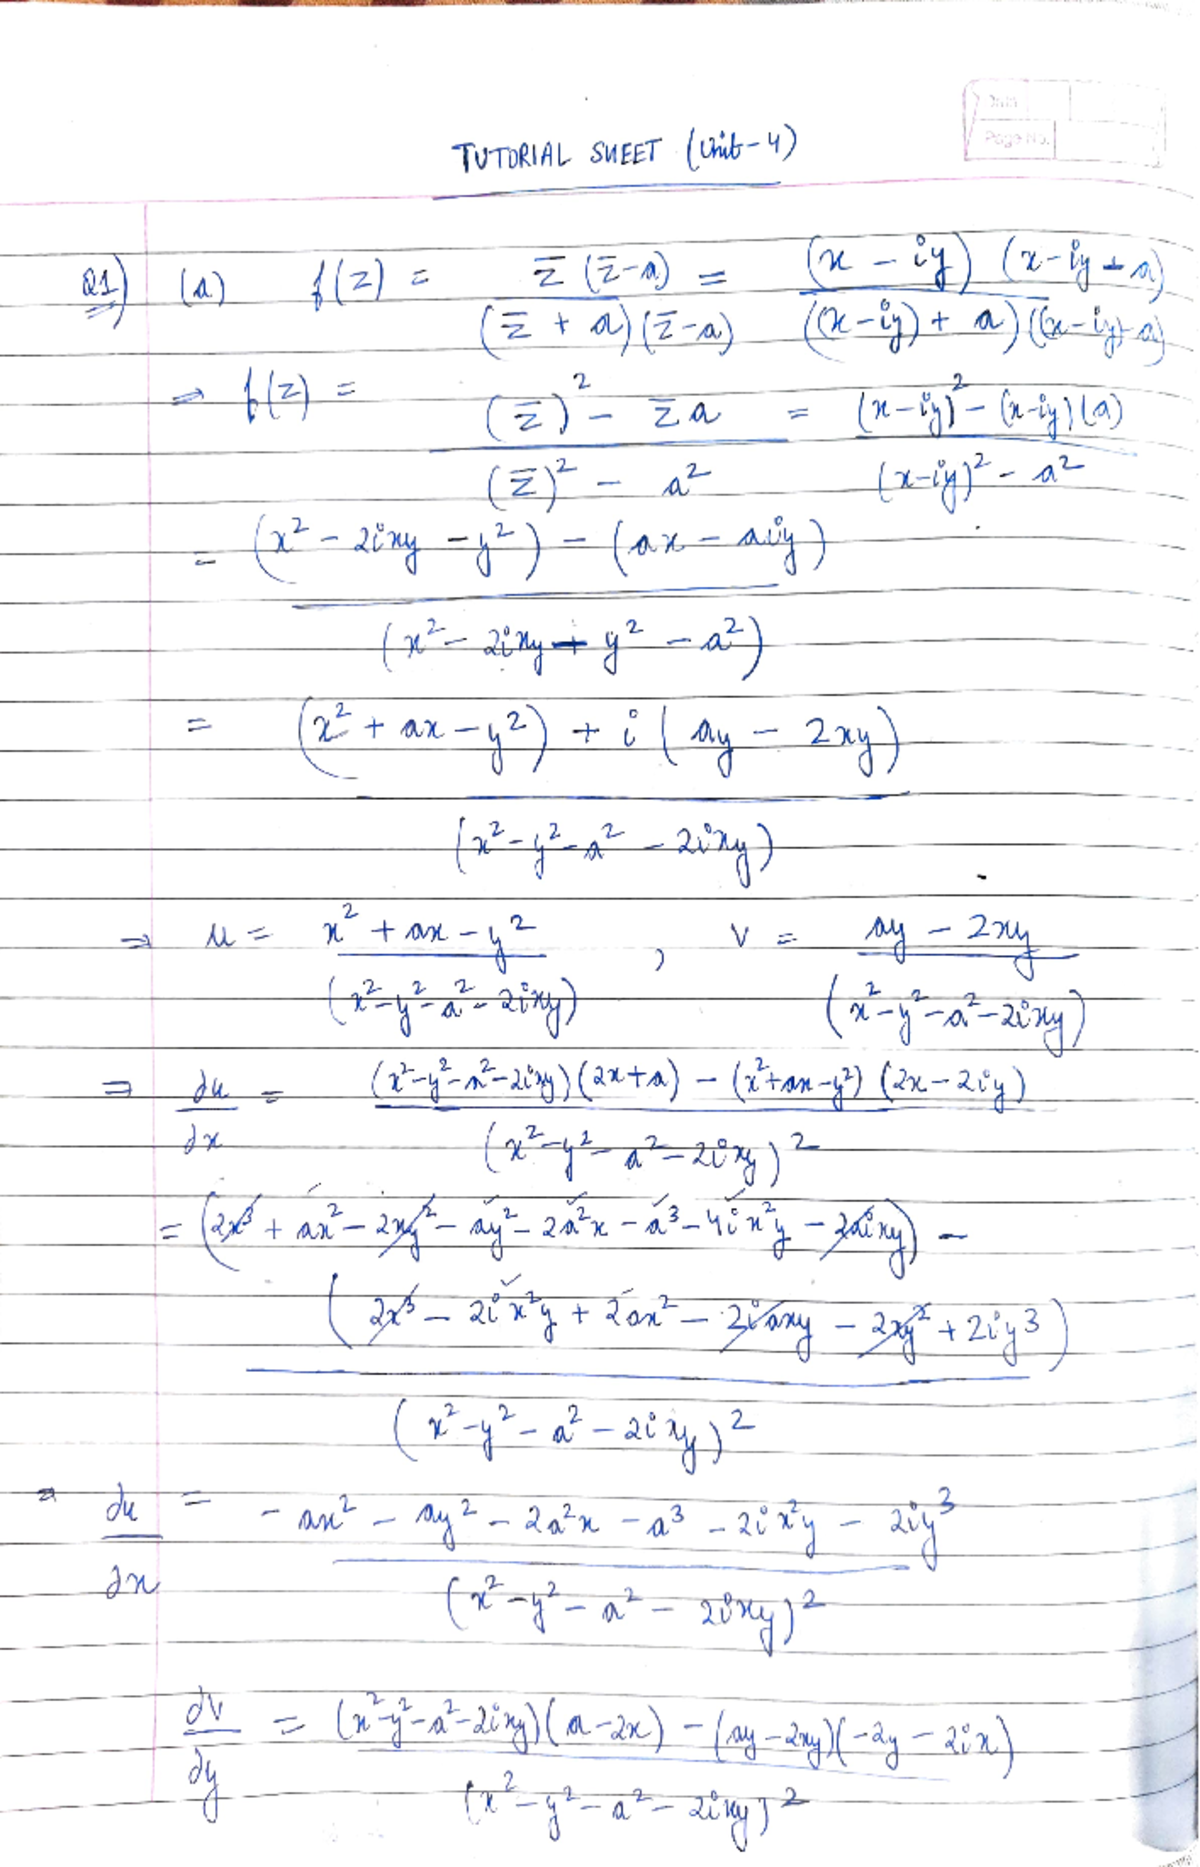 Date
Page No.
TUTORIAL SHEET (Unit-4)
Q1) (a) f(z) = z̄ (z̄-a) / (z̄ + a)(z̄-a) = (x - iy) (x-iy-a) / ((x-iy) + a)((x-iy)-a)
⇒ f(z) = (z̄)² - z̄a / (z̄)² - a² = (x-iy)² - (x-iy)(a) / (x-iy)² - a²
= (x² - 2ixy - y²) - (ax - aiy) / (x² - 2ixy - y² - a²)
= (x² + ax - y²) + i(ay - 2xy) / (x² - y² - a² - 2ixy)
⇒ u = x² + ax - y² / (x² - y² - a² - 2ixy) , v = ay - 2xy / (x² - y² - a² - 2ixy)
⇒ ∂u/∂x = (x² - y² - a² - 2ixy)(2x + a) - (x² + ax - y²)(2x - 2iy) / (x² - y² - a² - 2ixy)²
= (2x³ + ax² - 2xy² - ay² - 2a²x - a³ - 4ix²y - 2aixy) -
(2x³ - 2ix²y + 2ax² - 2iaxy - 2xy² + 2iy³)
/ (x² - y² - a² - 2ixy)²
⇒ ∂u/∂x = - ax² - ay² - 2a²x - a³ - 2ix²y - 2iy³ / (x² - y² - a² - 2ixy)²
∂v/∂y = (x² - y² - a² - 2ixy)(a - 2x) - (ay - 2xy)(-2y - 2ix) / (x² - y² - a² - 2ixy)²